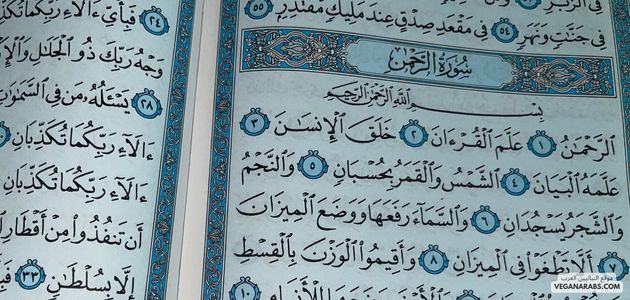 فِي جَنَّٰتٍ وَنَهَرٍ ٥٤ فِي مَقْعَدِ صِدْقٍ عِندَ مَلِيكٍ مُّقْتَدِرٍ ٥٥
سُورَةُ الرَّحْمَٰن
بِسْمِ اللَّهِ الرَّحْمَٰنِ الرَّحِيمِ
الرَّحْمَٰنُ ١ عَلَّمَ الْقُرْءَانَ ٢ خَلَقَ الْإِنسَٰنَ ٣
عَلَّمَهُ الْبَيَانَ ٤ الشَّمْسُ وَالْقَمَرُ بِحُسْبَانٍ ٥ وَالنَّجْمُ
وَالشَّجَرُ يَسْجُدَانِ ٦ وَالسَّمَآءَ رَفَعَهَا وَوَضَعَ الْمِيزَانَ
أَلَّا تَطْغَوْا فِي الْمِيزَانِ ٨ وَأَقِيمُوا الْوَزْنَ بِالْقِسْطِ
لِلْأَنَامِ ١٠
٢٤ فَبِأَيِّ ءَالَآءِ رَبِّكُمَا
وَجْهُ رَبِّكَ ذُو الْجَلَٰلِ
٢٨ يَسْـَٔلُهُ مَن فِي السَّمَٰوَٰتِ
ءَالَآءِ رَبِّكُمَا تُكَذِّبَانِ
ءَالَآءِ رَبِّكُمَا تُكَذِّبَانِ
أَن تَنفُذُوا مِنْ أَقْطَارِ
إِلَّا بِسُلْطَٰنٍ ٣٣
موقع النباتيين العرب
VEGANARABS.COM